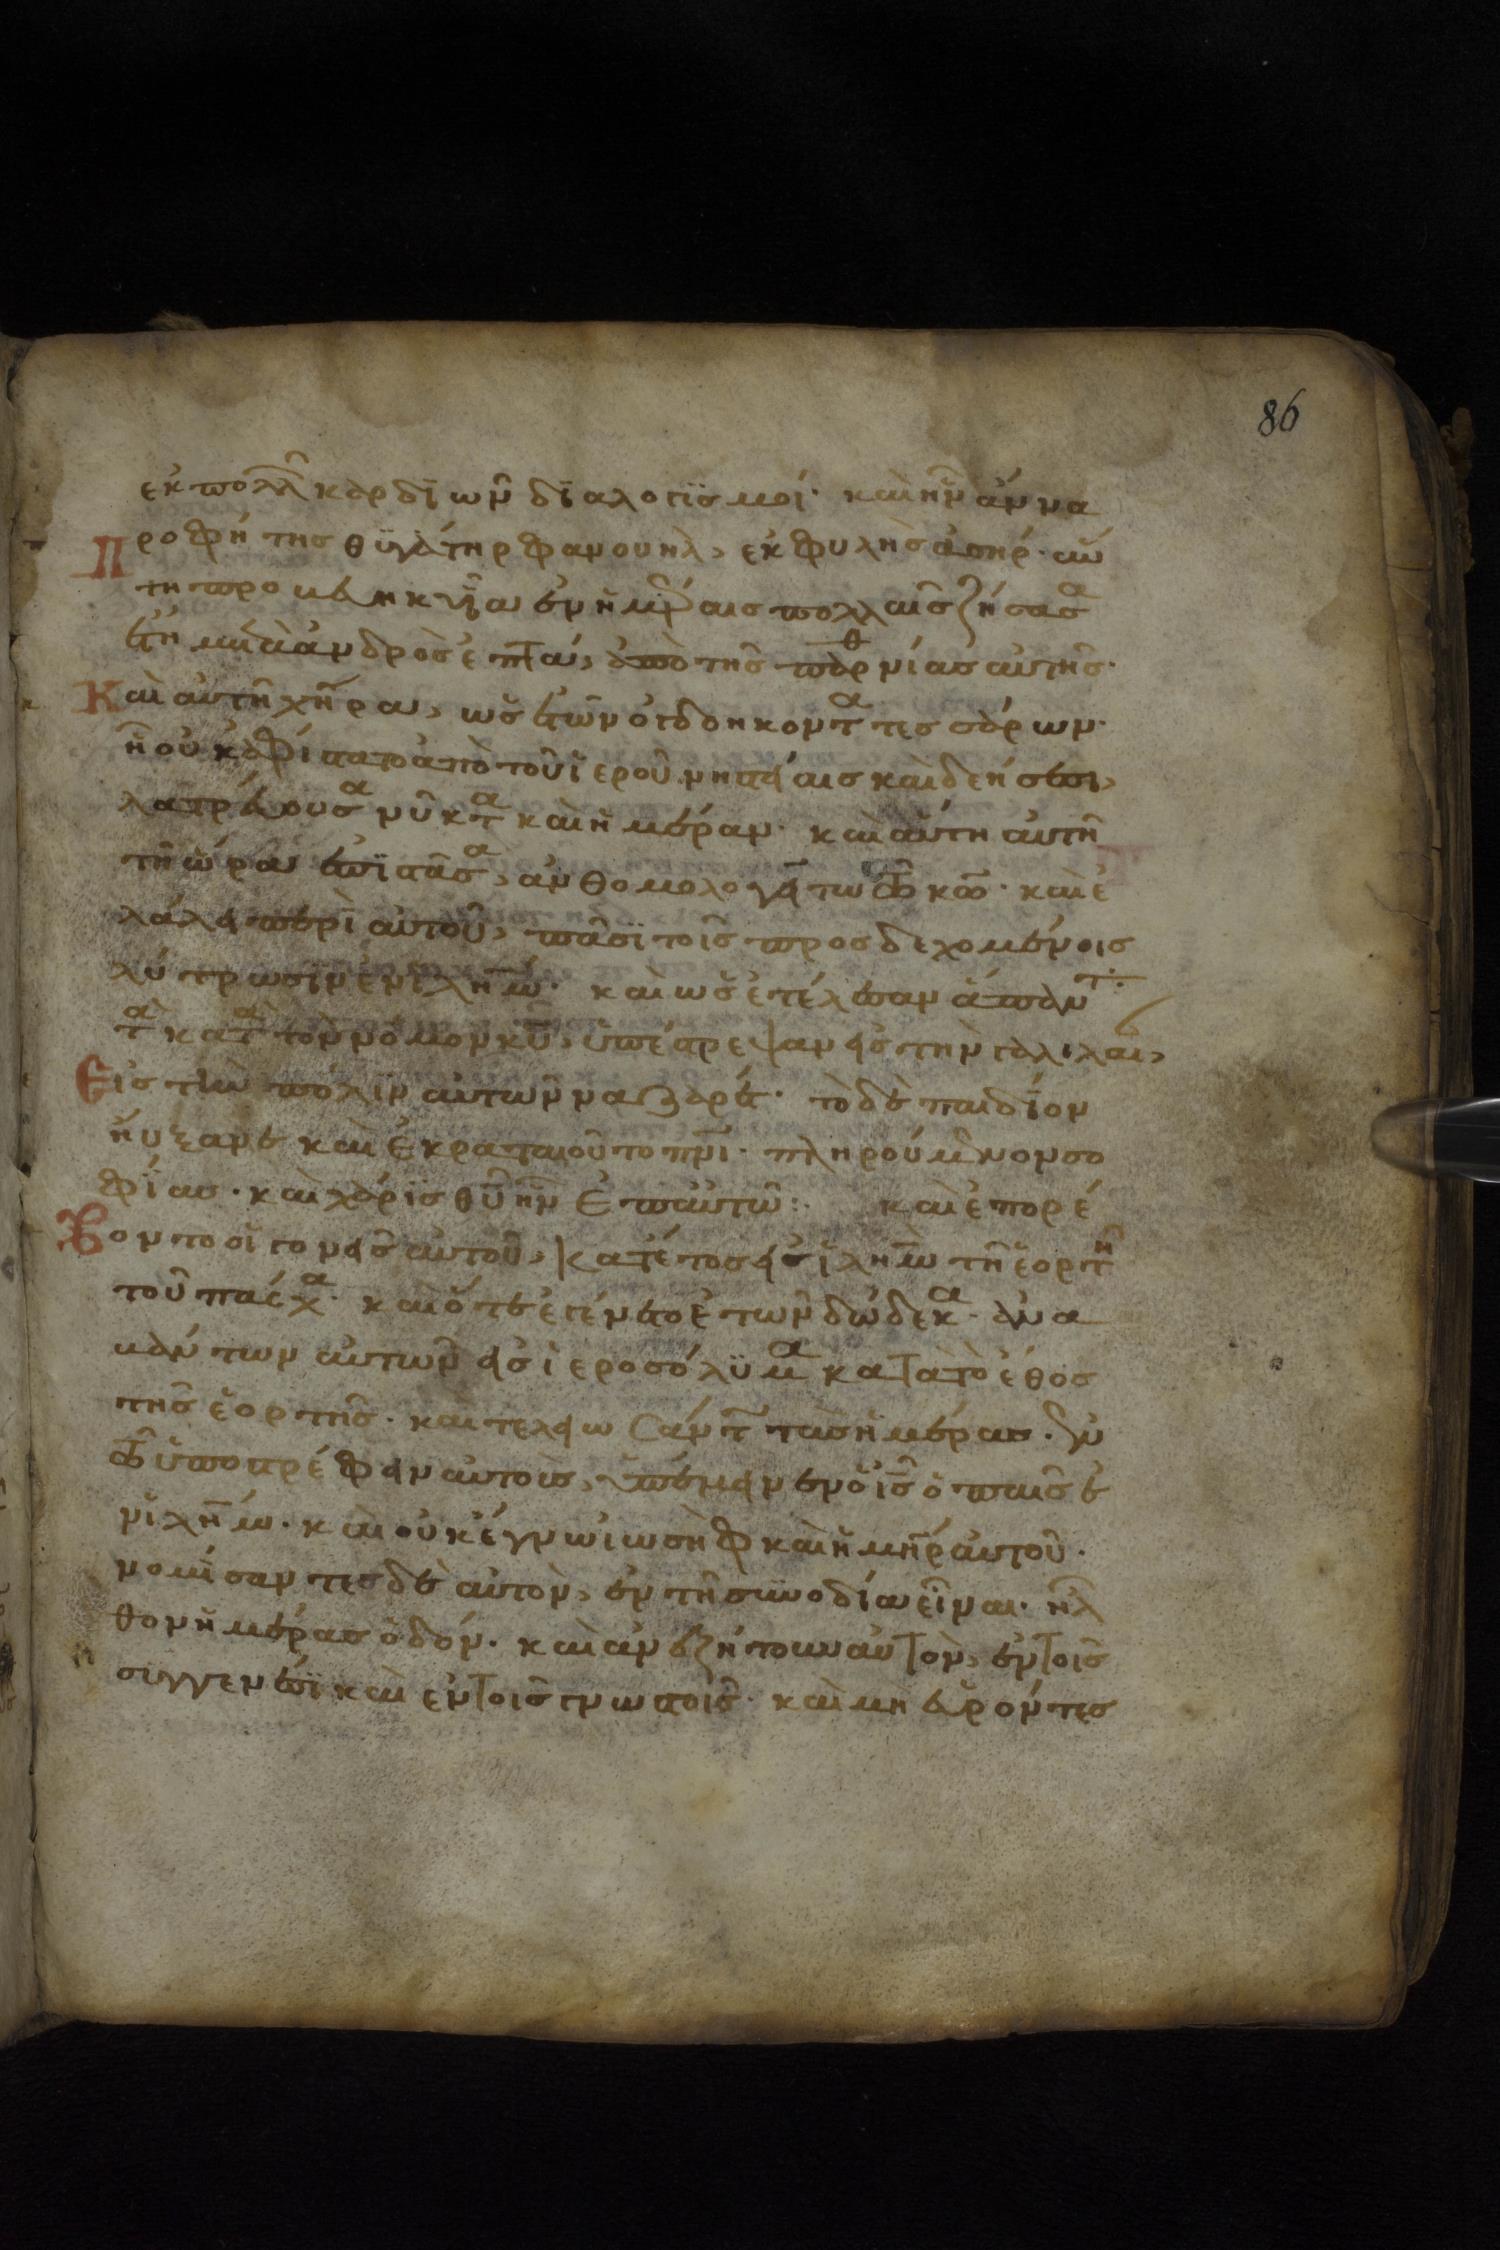 86
ἐκ πολλῶν καρδϊῶν δϊαλογϊσμοί· καὶ ἦν ἄννα
Προφήτης θϋγάτηρ φανουηλ, ἐκ φυλῆς ἀσήρ· αὕ
τη προβεβηκυῖα ἐν ἡμέραις πολλαῖς ζήσασα
ἔτη μετὰ ἀνδρὸς ἑπτὰ, ἀπὸ τῆς παρθενίας αὐτῆς·
Καὶ αὐτὴ χῆρα, ὡς ἐτῶν ὀγδοηκοντα τεσσάρων·
ἣ οὐκ ἀφίστατο ἀπὸ τοῦ ἱεροῦ νηστείαις καὶ δεήσεσι,
λατρεύουσα νύκτα καὶ ἡμέραν· καὶ αὕτη αὐτῆ
τῆ ὥρα ἐπϊστᾶσα, ἀνθομολογεῖτο τῶ κῶ· καὶ ἐ
λάλει περὶ αὐτοῦ, πᾶσϊ τοῖς προσδεχομένοις
λύτρωσϊν ἐν ϊλημ· καὶ ὡς ἐτέλεσαν ἅπαν
τα κατα τὸν νόμον κυ, ὑπέστρεψαν εἰς τὴν γαλιλαί,
Εἰς τὴν πόλϊν αὐτῶν ναζαρέτ· τὸ δὲ παιδίον
ηὔξανε καὶ ἐκραταιοῦτο πνι· πληρούμενον σο
φίας· καὶ χάρϊς θυ ἦν ἐπ αὐτῶ: καὶ ἐπορεύ
οντο οἱ γονεῖς αὐτοῦ, κατέτος εἰς ϊλημ τῆ ἑορτῆ
τοῦ πάσχα· καὶ ὅτε ἐγένετο ἐτῶν δώδεκα· ἀνα
βάντων αὐτῶν εἰς ἱεροσόλϋμα κατα τὸ ἔθος
τῆς ἑορτῆς· καὶ τελειωσάντ τὰς ἡμέρας· ἐν
τῶ ὑποστρέφειν αὐτοὺς, ὑπέμεινεν ὁ ις ὁ παῖς ἐ
ν ϊλημ· καὶ οὐκ ἔγνω ἰωσὴφ καὶ ἡ μηρ αὐτοῦ·
νομίσαντες δὲ αὐτὸν, ἐν τῆ συνοδία εἶναι· ἦλ
θον ἡμέρας ὁδόν· καὶ ἀνεζήτουν αὐτὸν, ἐν τοῖς
συγγενέσϊ καὶ ἐν τοῖς γνωστοῖς· καὶ μὴ εὑρόντες